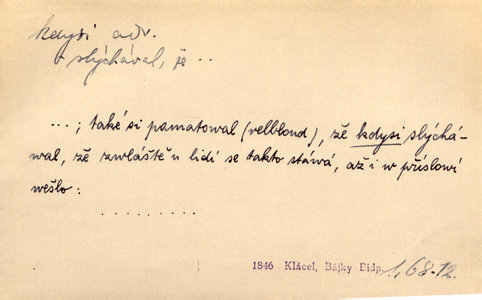 kdysi adv.
slýchával, že ...
...; také si pamatowal (velbloud), že kdysi slýchá-
wal, že zwláště u lidí se takto stáwá, až i w příslowí
wešlo:
.........
1846 Klácel, Bájky Bidp. 1, 68-12